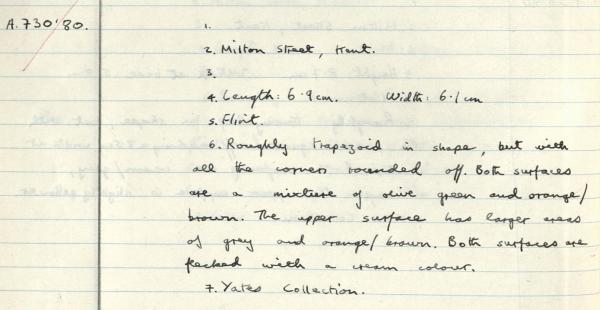 A.730'80.
1.
2. Milton Street, Kent.
3
4. Length: 6.9cm. Width: 6.1cm
5. Flint.
6. Roughly trapezoid in shape, but with
all the corners rounded off. Both surfaces
are a mixture of olive green and orange/
brown. The upper surface has larger areas
of grey and orange/brown. Both surfaces are
flecked with a cream colour.
7. Yates Collection.